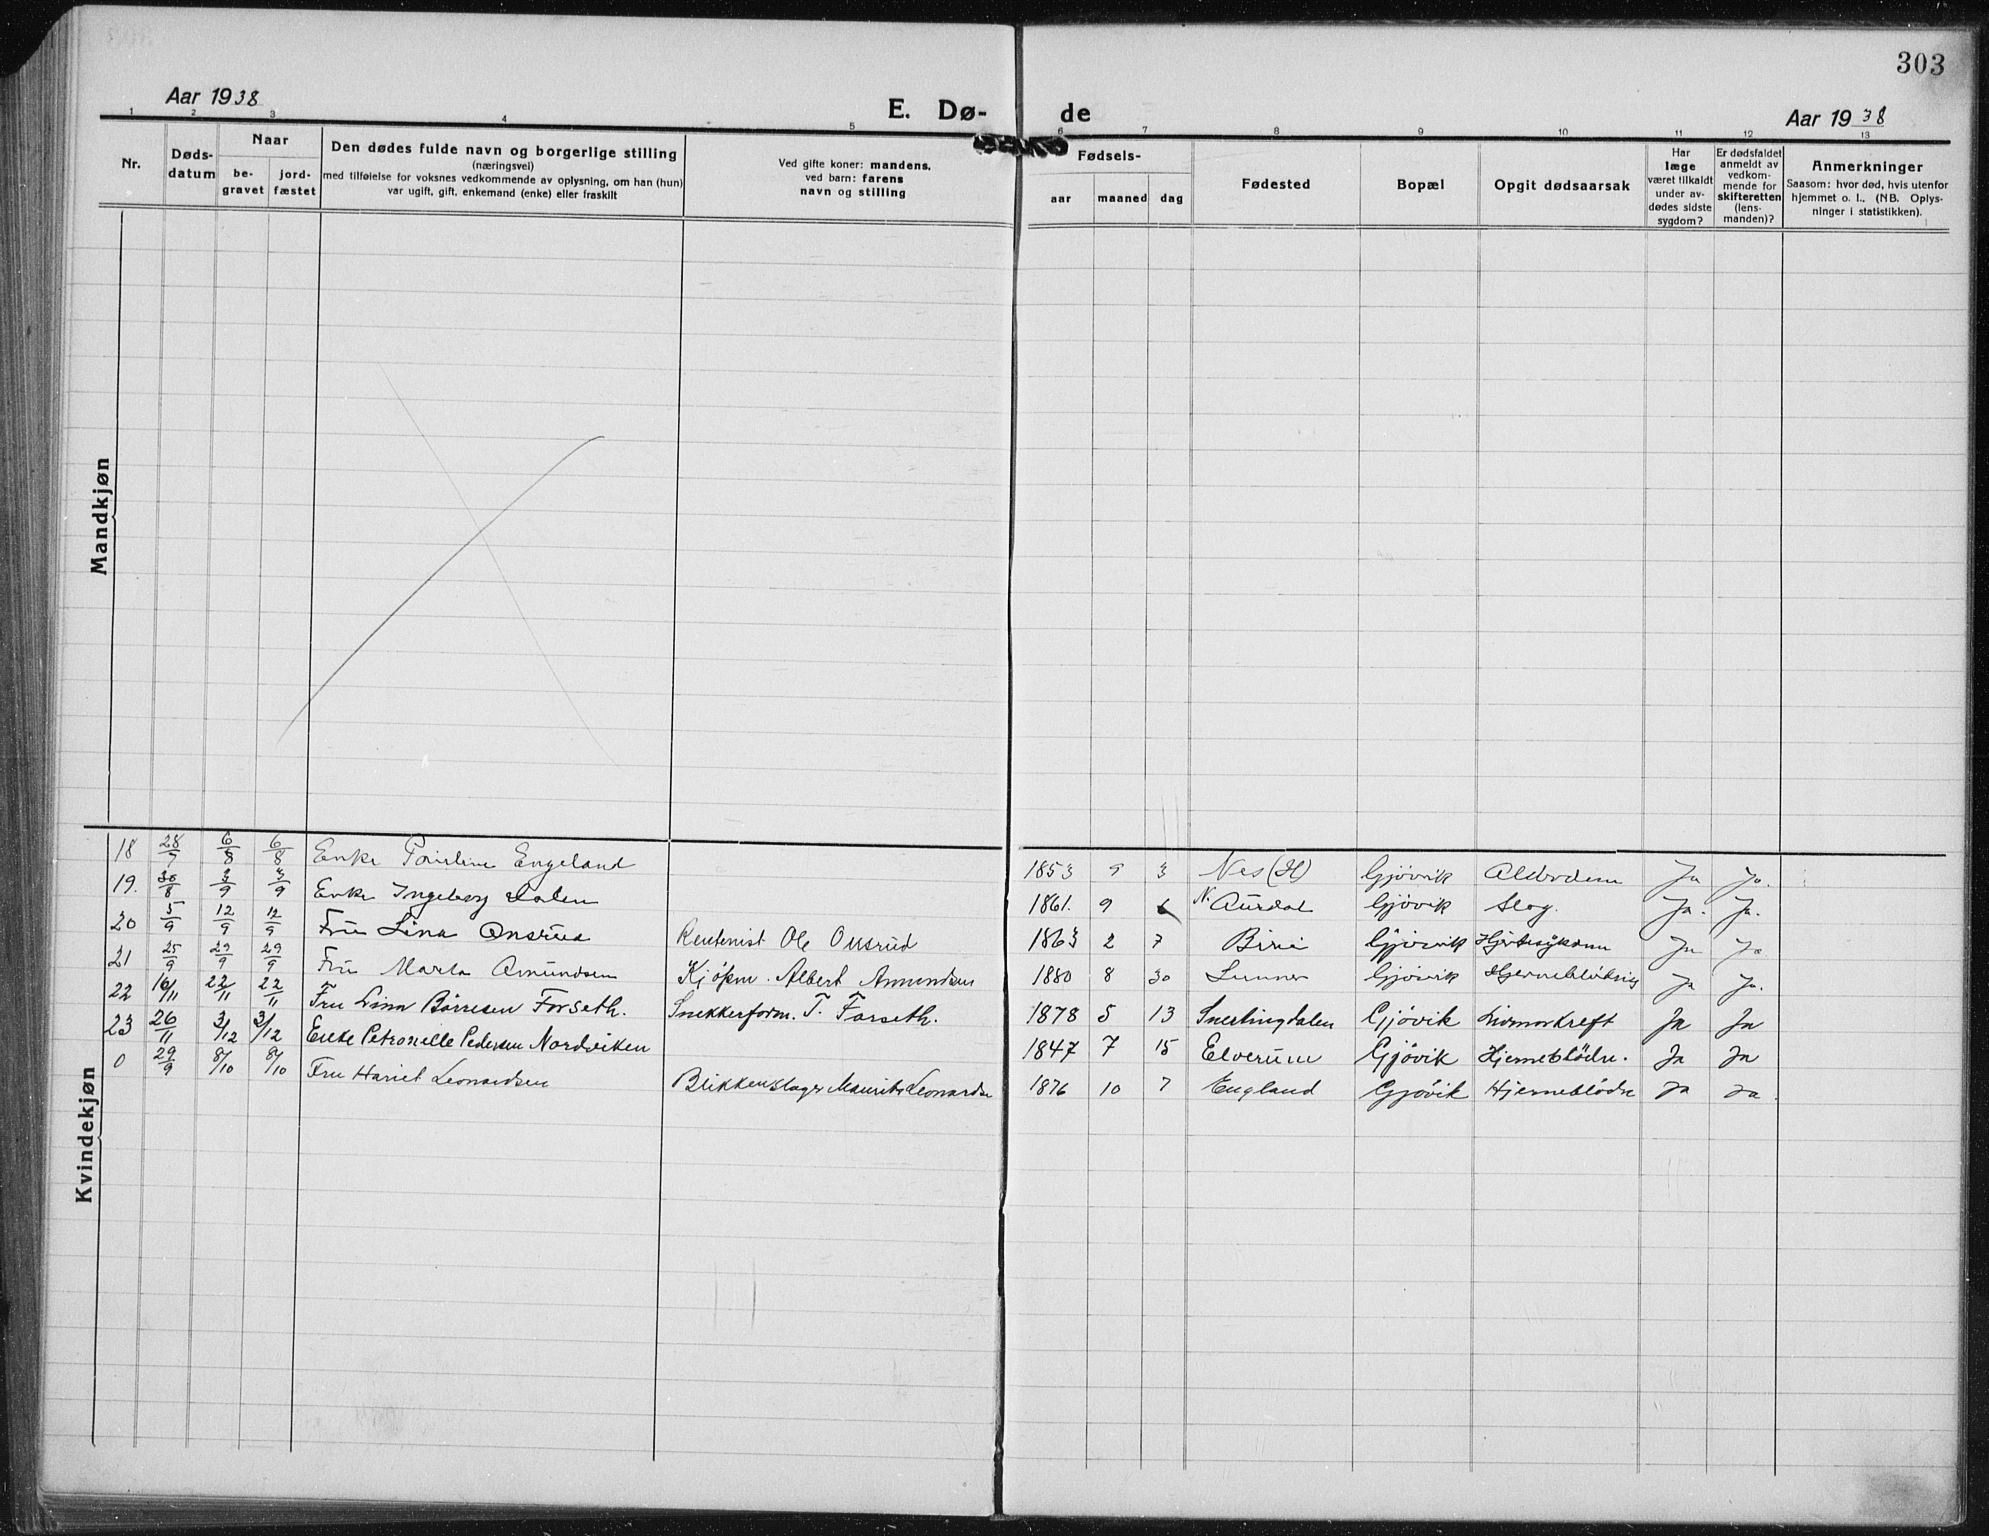 303
Aar 1938
E. Dø-
de
Aar 1938
1 2 3 4 5 6 7 8 9 10 11 12 13
Nr.
Døds-
datum
Naar
be-
gravet
jord-
fæstet
Den dødes fulde navn og borgerlige stilling
(næringsvei)
med tilføielse for voksnes vedkommende av oplysning, om han (hun)
var ugift, gift, enkemand (enke) eller fraskilt
Ved gifte koner: mandens,
ved barn: farens
navn og stilling
Fødsels-
aar maaned dag
Fødested
Bopæl
Opgit dødsaarsak
Har
læge
været tilkaldt
under av-
dødes sidste
sygdom?
Er dødsfaldet
anmeldt av
vedkom-
mende for
skifteretten
(lens-
manden)?
Anmerkninger
Saasom: hvor død, hvis utenfor
hjemmet o. l., (NB. Oplys-
ninger i statistikken).
Mandkjøn
Kvindekjøn
18 28/7 6/8 6/8 Enke Engeland 1853 9 3 Nes (H) Gjövik Ja Ja.
19. 30/8 3/9 3/9 Enke Ingeborg Dalen 1861. 9 6 N. Aurdal Gjövik Slag. Ja. Ja.
20 5/9 12/9 12/9 Fru Lina Onsrud Rentenist Ole Onsrud 1863 2 7 Biri Gjövik Hjertesykdom Ja Ja
21 25/9 29/9 29/9 Fru Marta Amundsen Kjöpm. Albert Amundsen 1880 8 30 Lunner Gjövik Ja Ja.
22 16/11 22/11 22/11 Fru Lina Börresen Forseth. Snekkerform. T. Forseth. 1878 5 13 Snertingdalen Gjövik Livmorkreft Ja Ja
23 26/11 3/12 3/12 Enke Petronelle Pedersen Nordviken 1847 7 15 Elverum Gjövik Hjerneblödn. Ja Ja
0 29/9 8/10 8/10 Fru Hariet Leonardsen Blikkenslager Maurits Leonardsn 1876 10 7 England Gjövik Hjerneblödn Ja Ja.